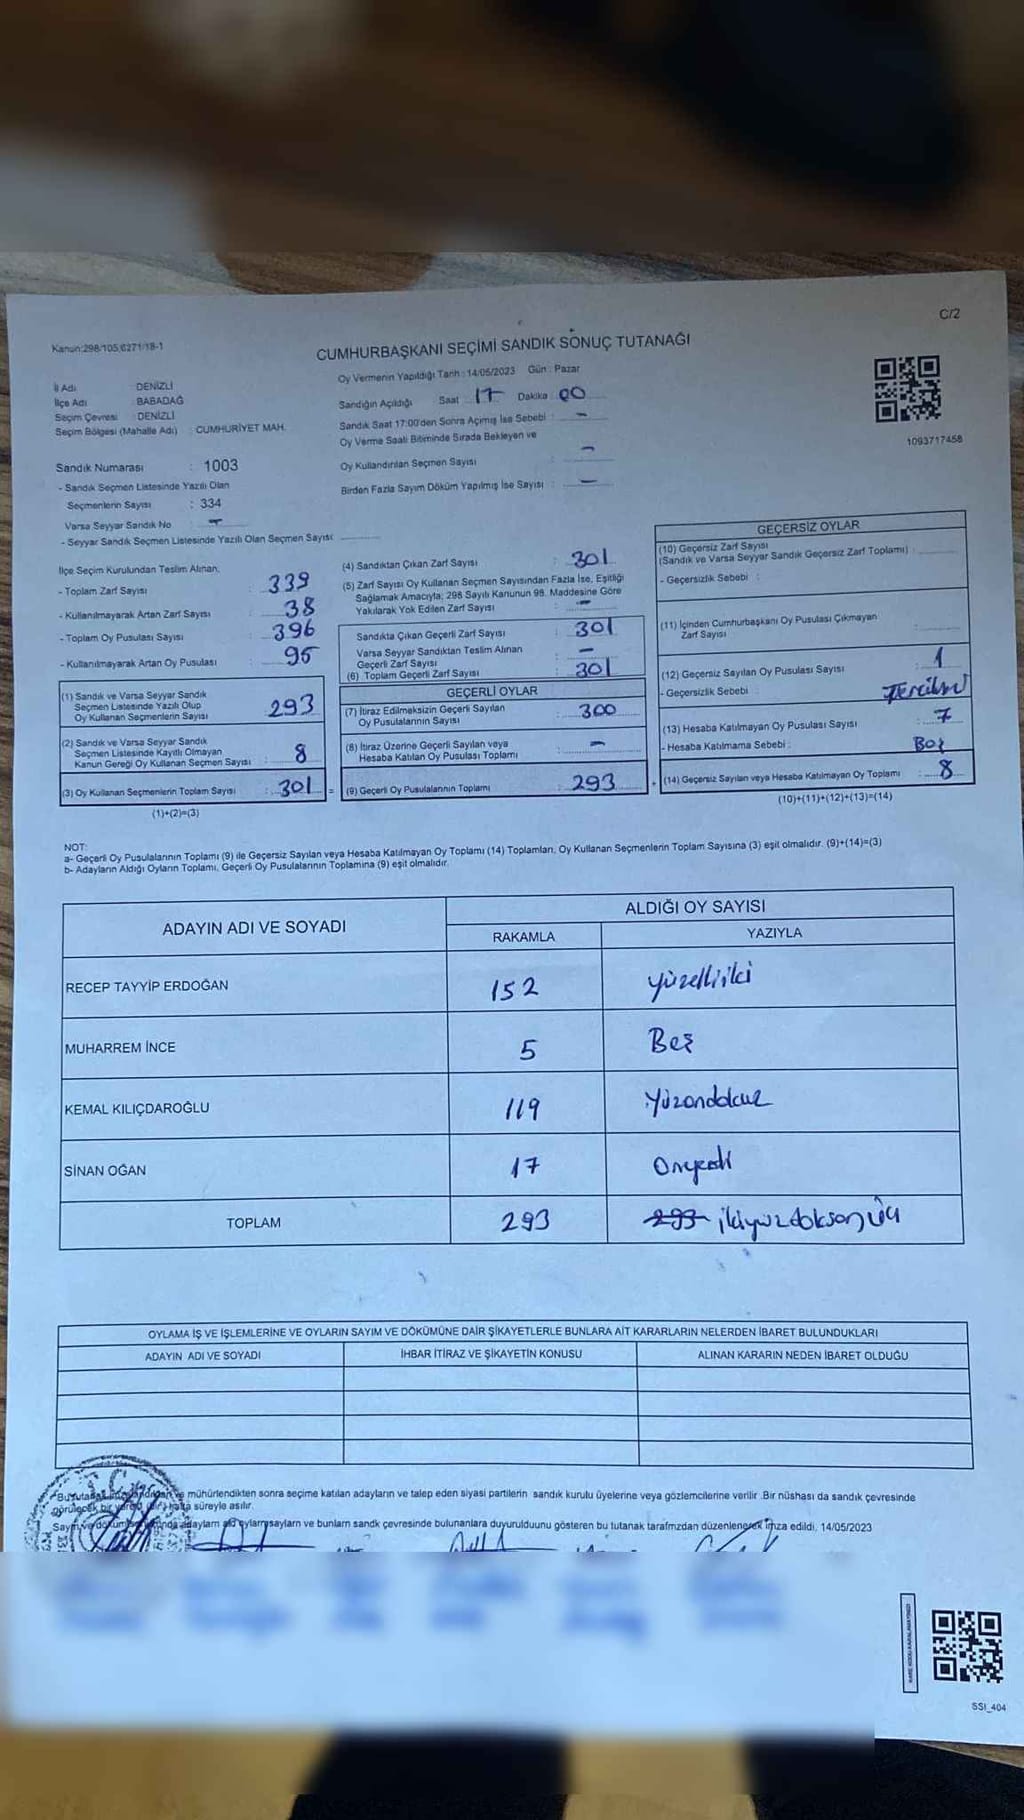 C/2
Kanun:298/105,6271/18-1
CUMHURBAŞKANI SEÇİMİ SANDIK SONUÇ TUTANAĞI
İl Adı : DENİZLİ
İlçe Adı : BABADAĞ
Seçim Çevresi : DENİZLİ
Seçim Bölgesi (Mahalle Adı) : CUMHURİYET MAH.
Sandık Numarası : 1003
- Sandık Seçmen Listesinde Yazılı Olan
Seçmenlerin Sayısı : 334
Varsa Seyyar Sandık No : -
- Seyyar Sandık Seçmen Listesinde Yazılı Olan Seçmen Sayısı:
Oy Vermenin Yapıldığı Tarih : 14/05/2023 Gün : Pazar
Sandığın Açıldığı Saat : 17 Dakika : 00
Sandık Saat 17:00'den Sonra Açımış İse Sebebi : -
Oy Verme Saati Bitiminde Sırada Bekleyen ve
Oy Kullandırılan Seçmen Sayısı : -
Birden Fazla Sayım Döküm Yapılmış İse Sayısı : -
1093717458
İlçe Seçim Kurulundan Teslim Alınan;
- Toplam Zarf Sayısı : 339
- Kullanılmayarak Artan Zarf Sayısı : 38
- Toplam Oy Pusulası Sayısı : 396
- Kullanılmayarak Artan Oy Pusulası : 95
(1) Sandık ve Varsa Seyyar Sandık
Seçmen Listesinde Yazılı Olup
Oy Kullanan Seçmenlerin Sayısı : 293
(2) Sandık ve Varsa Seyyar Sandık
Seçmen Listesinde Kayıtlı Olmayan
Kanun Gereği Oy Kullanan Seçmen Sayısı : 8
(3) Oy Kullanan Seçmenlerin Toplam Sayısı : 301 =
(1)+(2)=(3)
(4) Sandıktan Çıkan Zarf Sayısı : 301
(5) Zarf Sayısı Oy Kullanan Seçmen Sayısından Fazla İse, Eşitliği
Sağlamak Amacıyla; 298 Sayılı Kanunun 98. Maddesine Göre
Yakılarak Yok Edilen Zarf Sayısı : -
Sandıkta Çıkan Geçerli Zarf Sayısı : 301
Varsa Seyyar Sandıktan Teslim Alınan
Geçerli Zarf Sayısı : -
(6) Toplam Geçerli Zarf Sayısı : 301
GEÇERLİ OYLAR
(7) İtiraz Edilmeksizin Geçerli Sayılan
Oy Pusulalarının Sayısı : 300
(8) İtiraz Üzerine Geçerli Sayılan veya
Hesaba Katılan Oy Pusulası Toplamı : -
(9) Geçerli Oy Pusulalarının Toplamı : 293 +
GEÇERSİZ OYLAR
(10) Geçersiz Zarf Sayısı
(Sandık ve Varsa Seyyar Sandık Geçersiz Zarf Toplamı) :
- Geçersizlik Sebebi :
(11) İçinden Cumhurbaşkanı Oy Pusulası Çıkmayan
Zarf Sayısı :
(12) Geçersiz Sayılan Oy Pusulası Sayısı : 1
- Geçersizlik Sebebi :
(13) Hesaba Katılmayan Oy Pusulası Sayısı : 7
- Hesaba Katılmama Sebebi : Boş
(14) Geçersiz Sayılan veya Hesaba Katılmayan Oy Toplamı : 8
(10)+(11)+(12)+(13)=(14)
NOT:
a- Geçerli Oy Pusulalarının Toplamı (9) ile Geçersiz Sayılan veya Hesaba Katılmayan Oy Toplamı (14) Toplamları, Oy Kullanan Seçmenlerin Toplam Sayısına (3) eşit olmalıdır. (9)+(14)=(3)
b- Adayların Aldığı Oyların Toplamı, Geçerli Oy Pusulalarının Toplamına (9) eşit olmalıdır.
ADAYIN ADI VE SOYADI ALDIĞI OY SAYISI
RAKAMLA YAZIYLA
RECEP TAYYİP ERDOĞAN 152 yüzelliiki
MUHARREM İNCE 5 Beş
KEMAL KILIÇDAROĞLU 119 Yüzondokuz
SİNAN OĞAN 17 Onyedi
TOPLAM 293 293 ikiyüzdoksanüç
OYLAMA İŞ VE İŞLEMLERİNE VE OYLARIN SAYIM VE DÖKÜMÜNE DAİR ŞİKAYETLERLE BUNLARA AİT KARARLARIN NELERDEN İBARET BULUNDUKLARI
ADAYIN ADI VE SOYADI İHBAR İTİRAZ VE ŞİKAYETİN KONUSU ALINAN KARARIN NEDEN İBARET OLDUĞU
mühürlendikten sonra seçime katılan adayların ve talep eden siyasi partilerin sandık kurulu üyelerine veya gözlemcilerine verilir .Bir nüshası da sandık çevresinde
görülecek bir yere süreyle asılır.
bunların sandık çevresinde bulunanlara duyurulduunu gösteren bu tutanak tarafımzdan düzenlenerek imza edildi. 14/05/2023
SSİ_404